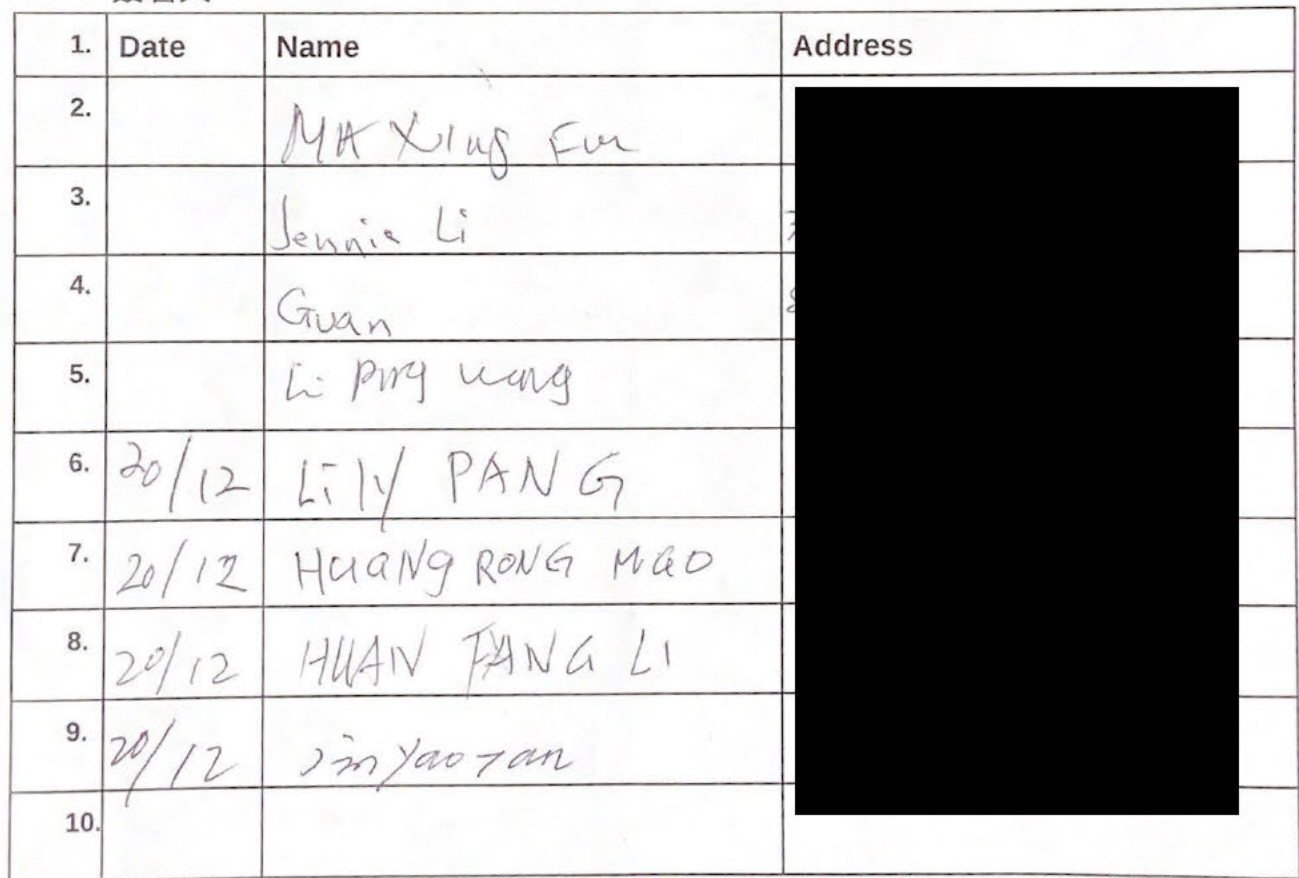 1. Date Name Address
2. MA Xing Fun
3. Jennie Li
4. Guan
5. Li Ping wang
6. 20/12 Lily PANG
7. 20/12 HUANG RONG MIAO
8. 20/12 HUAN FANG LI
9. 20/12 yao
10.